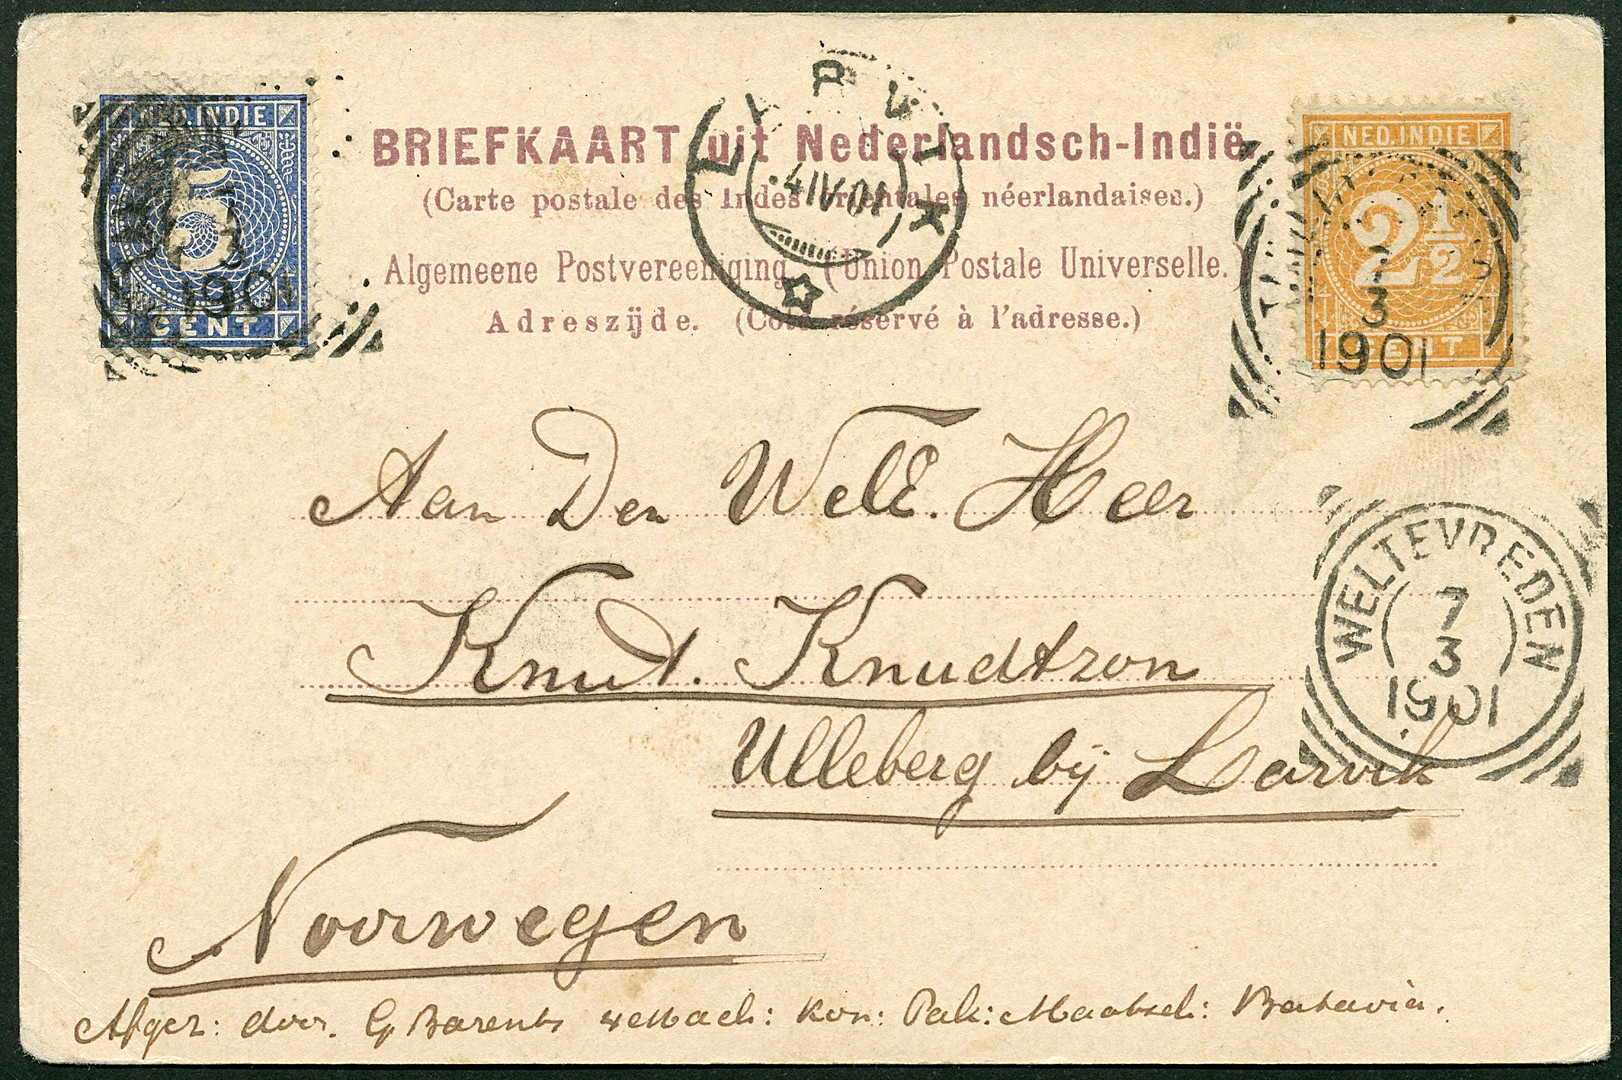 NED. INDIE
5
CENT
3
1901
BRIEFKAART uit Nederlandsch-Indië.
(Carte postale des Indes orientales néerlandaises.)
Algemeene Postvereeniging. (Union Postale Universelle.)
Adreszijde. (Coté réservé à l'adresse.)
LARVIK
4 IV 01
NED. INDIE
2 1/2
CENT
7
3
1901
Aan Den WelE. Heer
Knut. Knudtzon
Ulleberg bij Larvik
Noorwegen
WELTEVREDEN
7
3
1901
Afgez: door. G Barents Kon: Pak: Maatsch: Batavia.